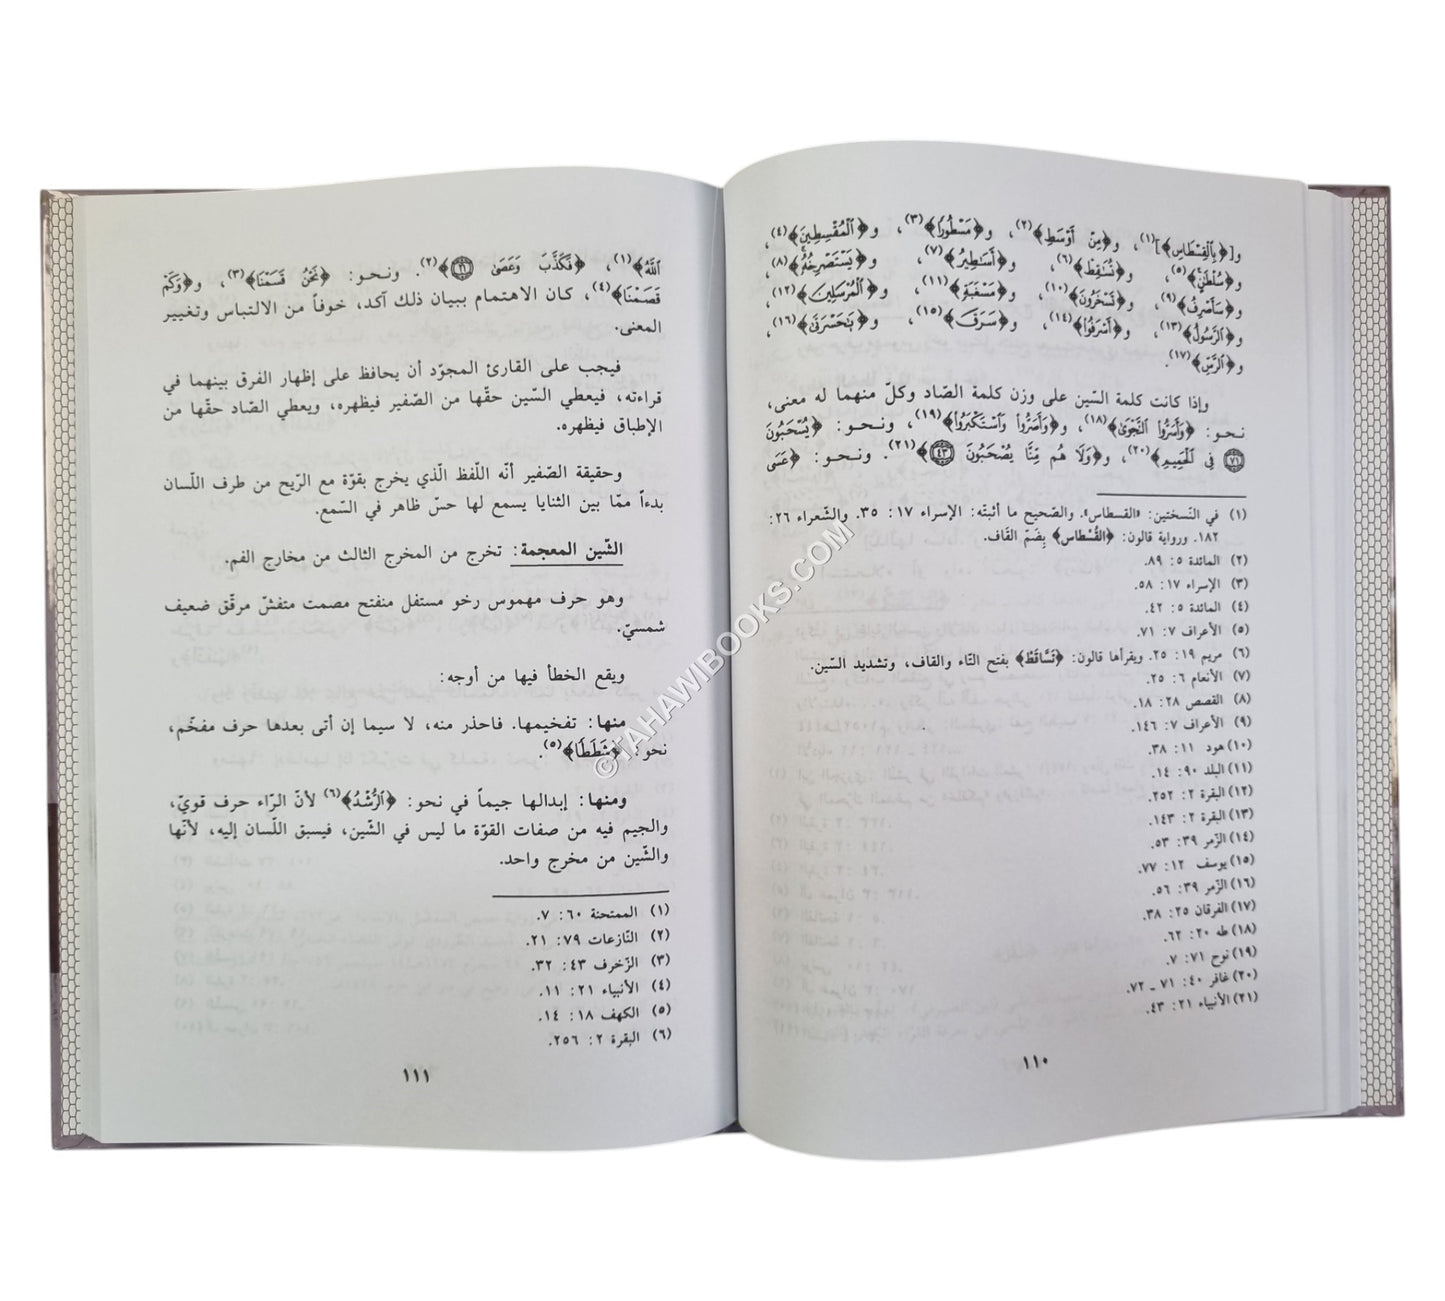 و[﴿بِالْقِسْطَاسِ﴾](١)، و﴿مِنْ أَوْسَطِ﴾(٢)، و﴿مَسْطُورًا﴾(٣)، و﴿الْمُقْسِطِينَ﴾(٤)،
و﴿سُلْطَٰنٍ﴾(٥)، و﴿تُسَٰقِطْ﴾(٦)، و﴿أَسَٰطِيرُ﴾(٧)، و﴿يَسْتَصْرِخُهُ﴾(٨)،
و﴿سَأَصْرِفُ﴾(٩)، و﴿تَسْخَرُونَ﴾(١٠)، و﴿مَسْغَبَةٍ﴾(١١)، و﴿الْمُرْسَلِينَ﴾(١٢)،
و﴿الرَّسُولُ﴾(١٣)، و﴿أَسْرَفُوا﴾(١٤)، و﴿سَرَقَ﴾(١٥)، و﴿يَٰحَسْرَتَىٰ﴾(١٦)،
و﴿الرَّسِّ﴾(١٧).
وإذا كانت كلمة السّين على وزن كلمة الصّاد وكلّ منهما له معنى،
نحو: ﴿وَأَسَرُّوا النَّجْوَىٰ﴾(١٨)، و﴿وَأَصَرُّوا وَاسْتَكْبَرُوا﴾(١٩)، ونحو: ﴿يُسْحَبُونَ
٧١ فِي الْحَمِيمِ﴾(٢٠)، و﴿وَلَا هُم مِّنَّا يُصْحَبُونَ ٤٣﴾(٢١). ونحو: ﴿عَسَى
(١) في النّسختين: «القسطاس». والصّحيح ما أثبتّه: الإسراء ١٧: ٣٥. والشّعراء ٢٦:
١٨٢. ورواية قالون: ﴿القُسْطاس﴾ بِضَمّ القَاف.
(٢) المائدة ٥: ٨٩.
(٣) الإسراء ١٧: ٥٨.
(٤) المائدة ٥: ٤٢.
(٥) الأعراف ٧: ٧١.
(٦) مريم ١٩: ٢٥. ويقرأها قالون: ﴿تَسَّاقَطْ﴾ بفتح التّاء والقاف، وتشديد السّين.
(٧) الأنعام ٦: ٢٥.
(٨) القصص ٢٨: ١٨.
(٩) الأعراف ٧: ١٤٦.
(١٠) هود ١١: ٣٨.
(١١) البلد ٩٠: ١٤.
(١٢) البقرة ٢: ٢٥٢.
(١٣) البقرة ٢: ١٤٣.
(١٤) الزّمر ٣٩: ٥٣.
(١٥) يوسف ١٢: ٧٧.
(١٦) الزّمر ٣٩: ٥٦.
(١٧) الفرقان ٢٥: ٣٨.
(١٨) طه ٢٠: ٦٢.
(١٩) نوح ٧١: ٧.
(٢٠) غافر ٤٠: ٧١ ـ ٧٢.
(٢١) الأنبياء ٢١: ٤٣.
١١٠
اللَّهُ﴾(١)، ﴿فَكَذَّبَ وَعَصَىٰ ٢١﴾(٢). ونحو: ﴿نَحْنُ قَسَمْنَا﴾(٣)، و﴿وَكَمْ
قَصَمْنَا﴾(٤)، كان الاهتمام ببيان ذلك آكد، خوفاً من الالتباس وتغيير
المعنى.
فيجب على القارئ المجوّد أن يحافظ على إظهار الفرق بينهما في
قراءته، فيعطي السّين حقّها من الصّفير فيظهره، ويعطي الصّاد حقّها من
الإطباق فيظهره.
وحقيقة الصّفير أنّه اللّفظ الّذي يخرج بقوّة مع الرّيح من طرف اللّسان
بدءاً ممّا بين الثنايا يسمع لها حسّ ظاهر في السّمع.
الشّين المعجمة: تخرج من المخرج الثالث من مخارج الفم.
وهو حرف مهموس رخو مستفل منفتح مصمت متفشّ مرقّق ضعيف
شمسيّ.
ويقع الخطأ فيها من أوجه:
منها: تفخيمها. فاحذر منه، لا سيما إن أتى بعدها حرف مفخّم،
نحو: ﴿شَطَطًا﴾(٥).
ومنها: إبدالها جيماً في نحو: ﴿الرُّشْدُ﴾(٦) لأنّ الرّاء حرف قويّ،
والجيم فيه من صفات القوّة ما ليس في الشّين، فيسبق اللّسان إليه، لأنّها
والشّين من مخرج واحد.
(١) الممتحنة ٦٠: ٧.
(٢) النّازعات ٧٩: ٢١.
(٣) الزّخرف ٤٣: ٣٢.
(٤) الأنبياء ٢١: ١١.
(٥) الكهف ١٨: ١٤.
(٦) البقرة ٢: ٢٥٦.
١١١
©TAHAWIBOOKS.COM